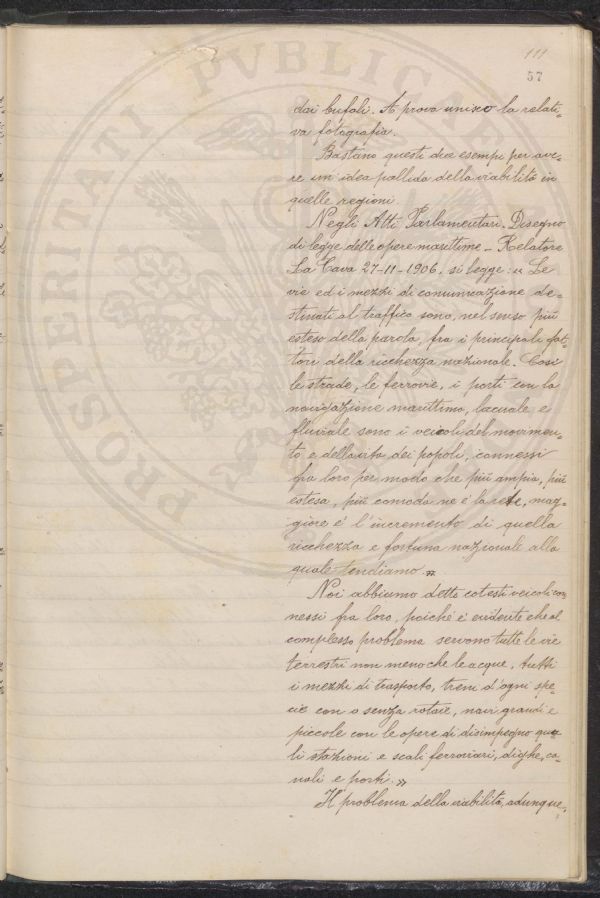 111
57
dai bufali. A prova unisco la relati=
va fotografia.
Bastano questi due esempi per ave=
re un'idea pallida della viabilità in
quelle regioni.
Negli Atti Parlamentari. Disegno
di legge delle opere marittime - Relatore
La Cava 27-11-1906. si legge: « Le
vie ed i mezzi di comunicazione de=
stinati al traffico sono, nel senso più
esteso della parola, fra i principali fat=
tori della ricchezza nazionale. Così
le strade, le ferrovie, i porti con la
navigazione marittima, lacuale e
fluviale sono i veicoli del movimen=
to e della vita dei popoli, connessi
fra loro per modo che più ampia, più
estesa, più comoda ne è la rete, mag=
giore è l'incremento di quella
ricchezza e fortuna nazionale alla
quale tendiamo ».
Noi abbiamo detto cotesti veicoli con
nessi fra loro, poiché è evidente che al
complesso problema servono tutte le vie
terrestri non meno che le acque, tutti
i mezzi di trasporto, treni d'ogni spe=
cie con o senza rotaie, navi grandi e
piccole con le opere di disimpegno qua=
li stazioni e scali ferroviari, dighe, ca=
nali e porti. »
Il problema della viabilità, adunque,
PROSPERITATI PVBLICAE